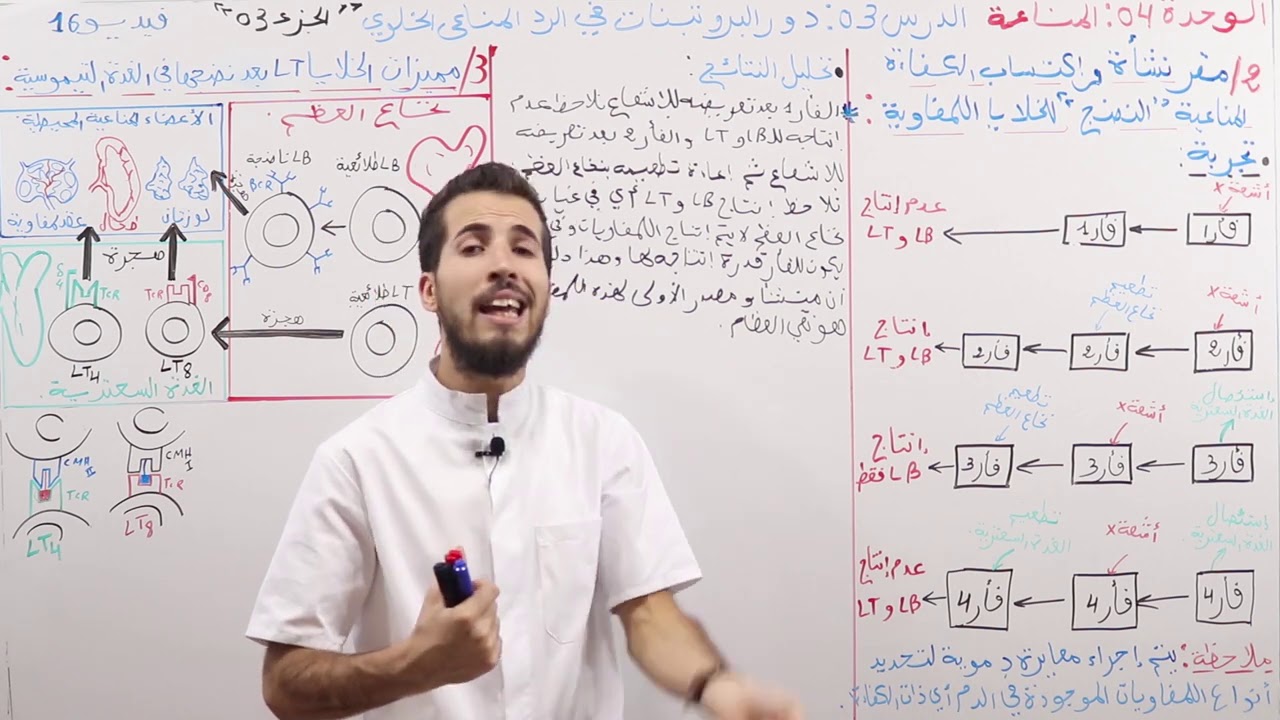 الوحدة 04: المناعة الدرس 03: دور البروتينات في الرد المناعي الخلوي "الجزء 03" فيديو 16
2/ مقر نشأة و إكتساب الكفاءة
المناعية "النضج" للخلايا اللمفاوية:
• تجربة:
أشعة X
فأر 1
فأر 1
عدم إنتاج
LB و LT
أشعة X
تطعيم
نخاع العظم
فأر 2
فأر 2
فأر 2
إنتاج
LB و LT
إستئصال
الغدة السعترية
أشعة X
تطعيم
نخاع العظم
فأر 3
فأر 3
فأر 3
إنتاج
LB فقط
إستئصال
الغدة السعترية
أشعة X
تطعيم
الغدة السعترية
فأر 4
فأر 4
فأر 4
عدم إنتاج
LB و LT
ملاحظة: يتم إجراء معايرة دموية لتحديد
أنواع اللمفاويات الموجودة في الدم أي ذات الكفاءة.
• تحليل النتائج:
* الفأر 1 بعد تعريضه للاشعاع نلاحظ عدم
انتاجه للـ LB و LT والفأر 2 بعد تعريضه
للاشعاع ثم إعادة تطعيمه بنخاع العظم
نلاحظ إنتاج LB و LT أي في
نخاع العظم لا يتم إنتاج اللمفاويات
يكون للفأر قدرة إنتاجه لها وهذا
أن منشأ و مصدر الأولي لهذه
هو نقي العظام.
3/ مميزات الخلايا LT بعد نضجها في الغدة التيموسية:
نخاع العظم
LB ناضجة
LB طلائعية
BCR
هجرة
LT طلائعية
هجرة
الأعضاء المناعية المحيطية:
لوزتان
طحال
عقد لمفاوية
هجرة
CD4
TCR
TCR
CD8
LT4
LT8
الغدة السعترية
CMH II
TCR
LT4
CMH I
TCR
LT8